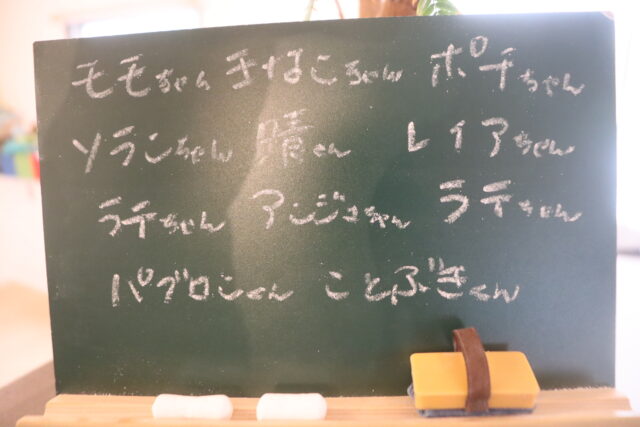 モモちゃん きなこちゃん ポチちゃん
ソランちゃん 晴くん レイアちゃん
ラテちゃん アンジュちゃん ラテちゃん
パブロンくん ことぶきくん